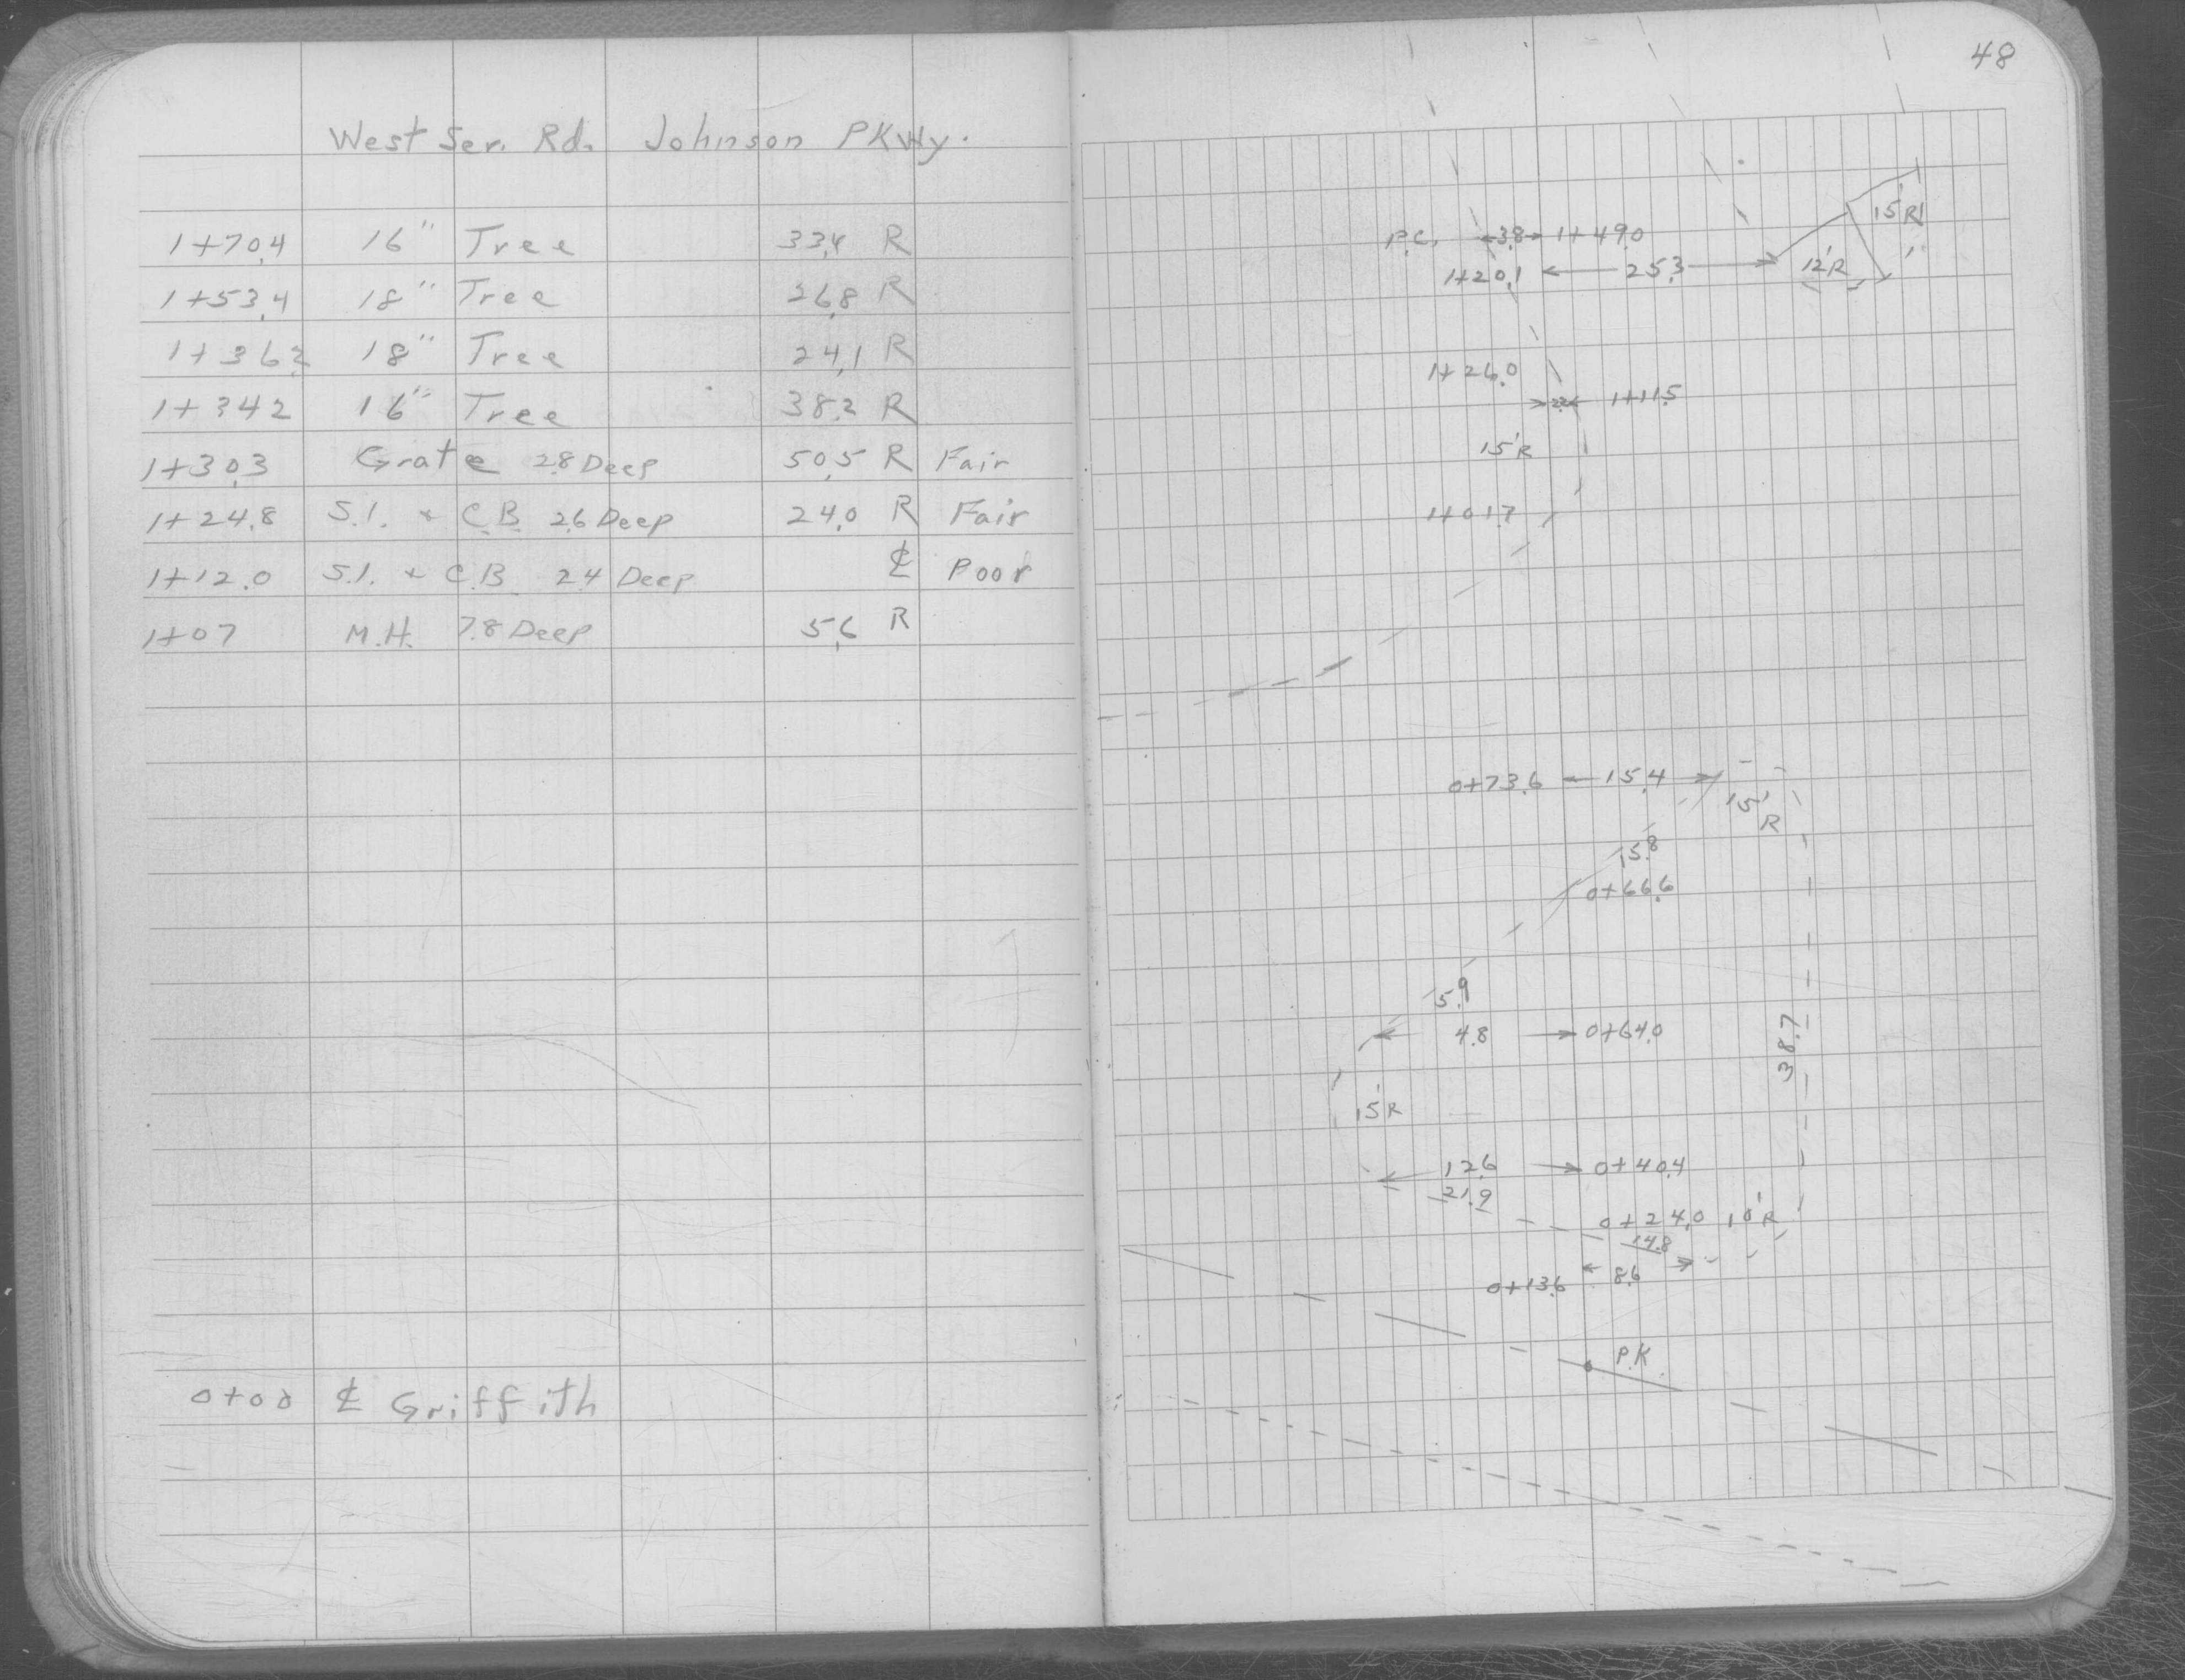 West Ser. Rd. Johnson PKWy.
1+70.4 16" Tree 33.4 R
1+53.4 18" Tree 26.8 R
1+36.2 18" Tree 24.1 R
1+34.2 16" Tree 38.2 R
1+30.3 Grate 2.8 Deep 50.5 R Fair
1+24.8 S.I. + C.B. 2.6 Deep 24.0 R Fair
1+12.0 S.I. + C.B. 2.4 Deep ℄ Poor
1+07 M.H. 7.8 Deep 5.6 R
0+00 ℄ Griffith
48
15'R
P.C. 3.8 1+49.0
1+20.1 25.3 12'R
1+26.0
2.2 1+11.5
15'R
1+01.7
0+73.6 15.4
15'
R
15.8
0+66.6
5.9
4.8 0+64.0
38.7
15'R
12.6 0+40.4
21.9
0+24.0 10'R
14.8
0+13.6 8.6
P.K.